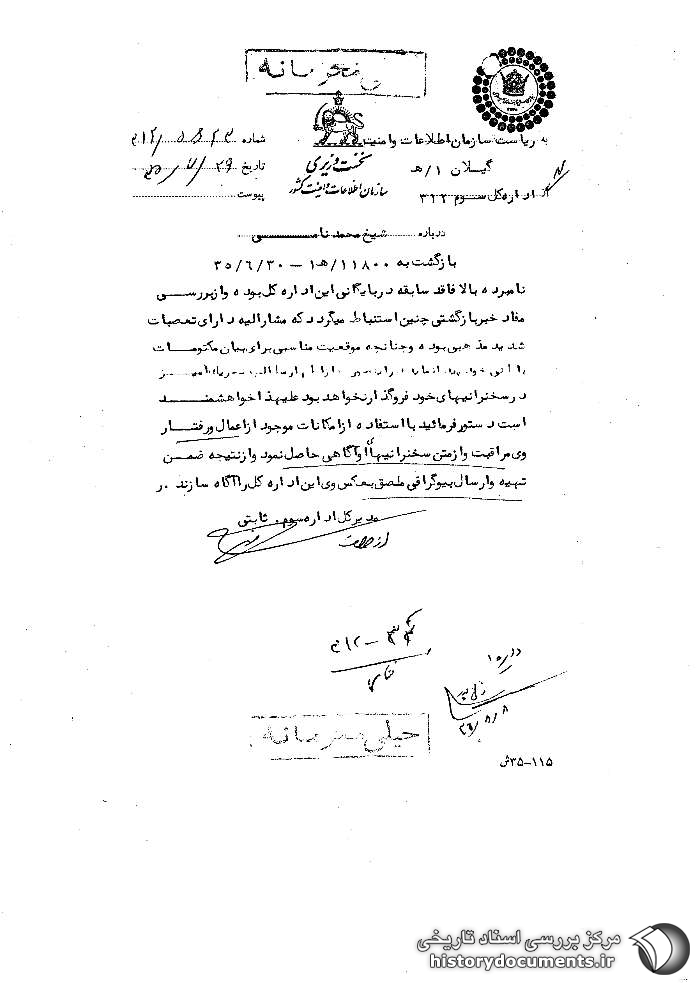 محرمانه
به ریاست سازمان اطلاعات وامنیت
گیلان ۱/هـ
از اداره کل سوم ۳۲۲
نخست وزیری
سازمان اطلاعات و امنیت کشور
شماره
تاریخ ۲۹/۷/۳۵
پیوست
درباره شیخ محمد نامی
بازگشت به ۱۱۸۰۰/هـ۱ – ۳۵/۶/۳۰
نامبرده بالا فاقد سابقه دربایگانی این اداره کل بوده وازبررسی
مفاد خبربازگشتی چنین استنباط میگردد که مشارالیه دارای تعصبات
شدید مذهبی بوده وچنانچه موقعیت مناسبی برای بیان مکنونات
درسخنرانیهای خود فروگذارنخواهد بود علیهذا خواهشمند
است دستورفرمائید بااستفاده ازامکانات موجود ازاعمال ورفتار
وی مراقبت وازمتن سخنرانیهای اوآگاهی حاصل نمود وازنتیجه ضمن
تهیه وارسال بیوگرافی ملصق بعکس وی این اداره کل راآگاه سازند. ر
مدیرکل اداره سوم. ثابتی
از طرف
۳۱۲ –
خیلی محرمانه
۱۱۵–۳۵ش
مرکز بررسی اسناد تاریخی
historydocuments.ir